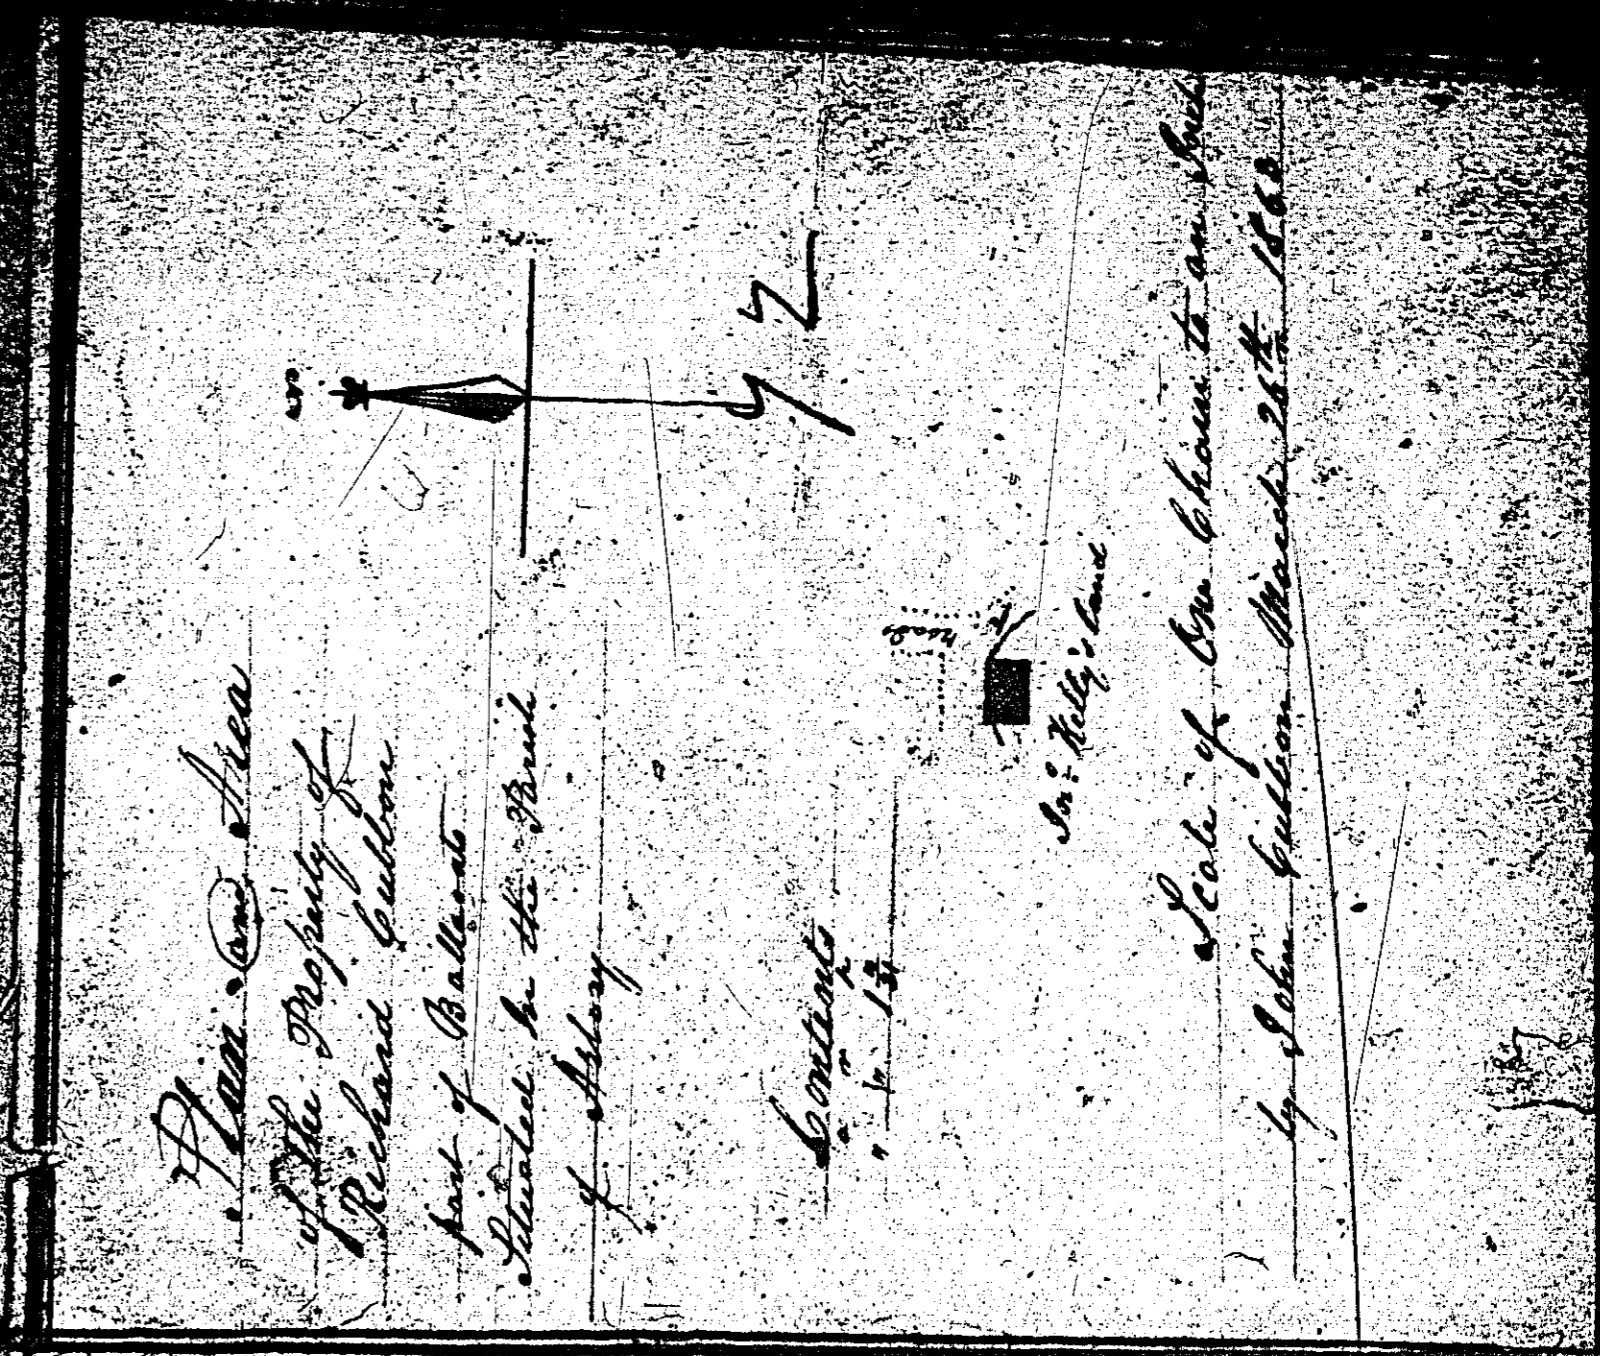 Plan and Area
of the Property of
Richard Cubbon
part of Ballavale
Situated in the Parish
of
Contents
a r p
" "
road
Jn.º Kelly's land
Scale of One Chain to an Inch
by John Cubbon March 26th 186